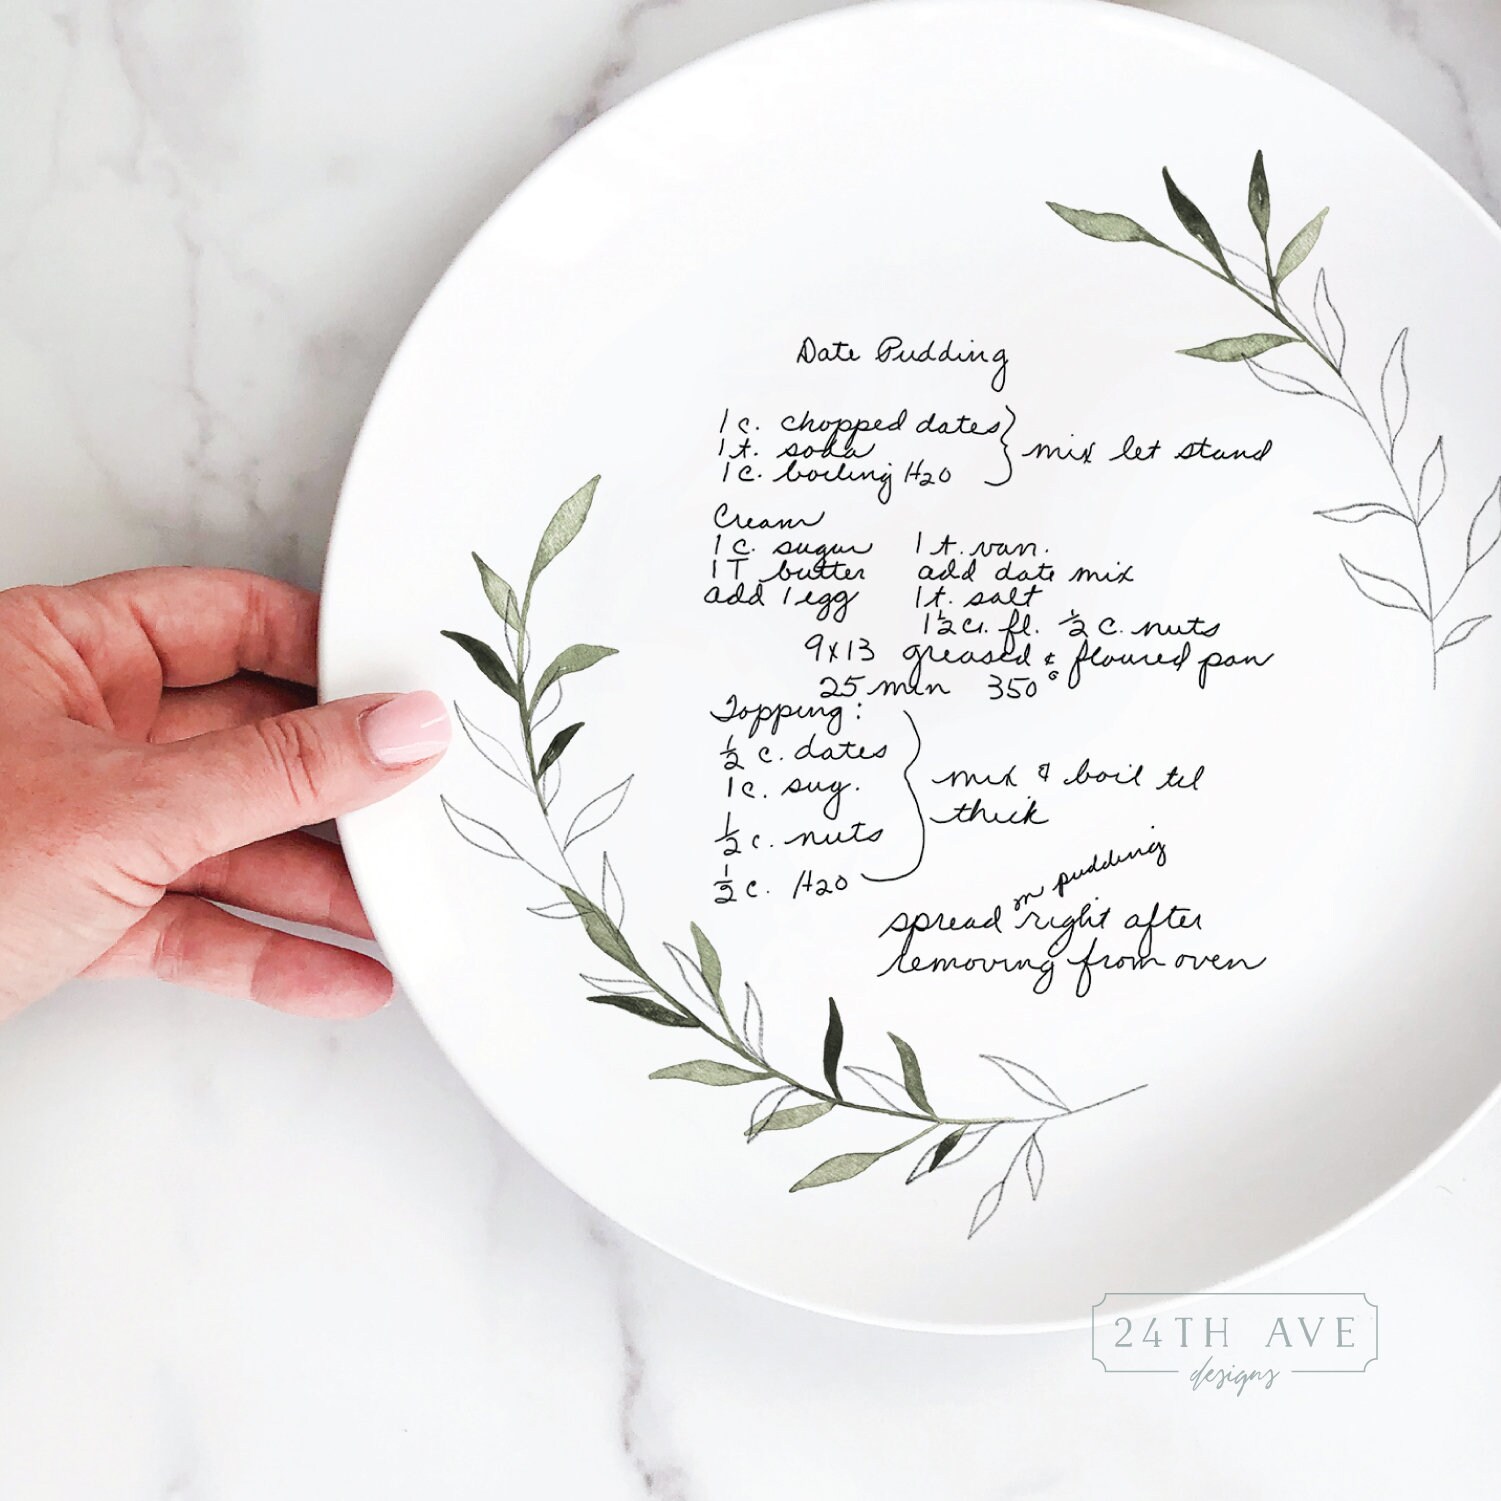 Date Pudding
1 c. chopped dates
1 t. soda
1 c. boiling H2O
mix let stand
Cream
1 c. sugar
1 T butter
add 1 egg
1 t. van.
add date mix
1 t. salt
1 1/2 c. fl. 1/2 c. nuts
9x13 greased & floured pan
25 min 350°
Topping:
1/2 c. dates
1 c. sug.
1/2 c. nuts
1/2 c. H2O
mix & boil til
thick
on pudding
spread right after
removing from oven
24TH AVE
designs